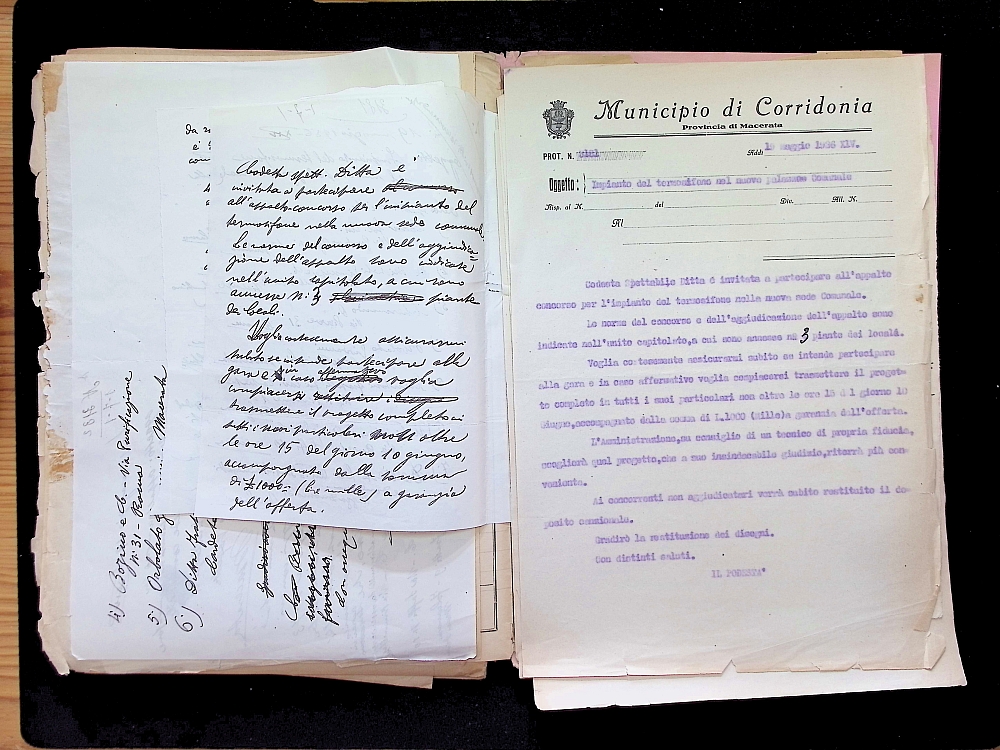 da
è
com
Codesta Spett. Ditta è
invitata a partecipare
all'appalto-concorso per l'impianto del
termosifone nella nuova sede comunale.
Le norme del concorso e dell'aggiudica-
zione dell'appalto sono indicate
nell'unito capitolato, a cui sono
annesse N. 3 piante
dei locali.
Voglia cortesemente assicurarmi
subito se intende partecipare alla
gara e in caso affermativo voglia
compiacersi
trasmettere il progetto completo in
tutti i suoi particolari non oltre
le ore 15 del giorno 10 giugno,
accompagnato dalla somma
di £ 1000 - (lire mille) a garanzia
dell'offerta.
4) Bogino e C. - Via Purificazione
N. 31 - Roma
5) Ortolato Macerata
6) Ditta
Municipio di Corridonia
Provincia di Macerata
PROT. N.
Addì 19 maggio 1936 XIV.
Oggetto: Impianto del termosifone nel nuovo palazzo Comunale
Risp. al N. del Div. All. N.
Al
Codesta Spettabile Ditta è invitata a partecipare all'appalto
concorso per l'impianto del termosifone nella nuova sede Comunale.
Le norme del concorso e dell'aggiudicazione dell'appalto sono
indicate nell'unito capitolato,a cui sono annesse n. 3 piante dei locali.
Voglia cortesemente assicurarmi subito se intende partecipare
alla gara e in caso affermativo voglia compiacersi trasmettere il proget-
to completo in tutti i suoi particolari non oltre le ore 15 del giorno 10
Giugno,accompagnato dalla somma di L.1000 (Mille)a garanzia dell'offerta.
L'Amministrazione,su consiglio di un tecnico di propria fiducia,
scoglierà qual progetto,che a suo insindacabile giudizio,riterrà più con-
veniente.
Ai concorrenti non aggiudicatari verrà subito restituito il de-
posito cauzionale.
Gradirò la restituzione dei disegni.
Con distinti saluti.
IL PODESTA'